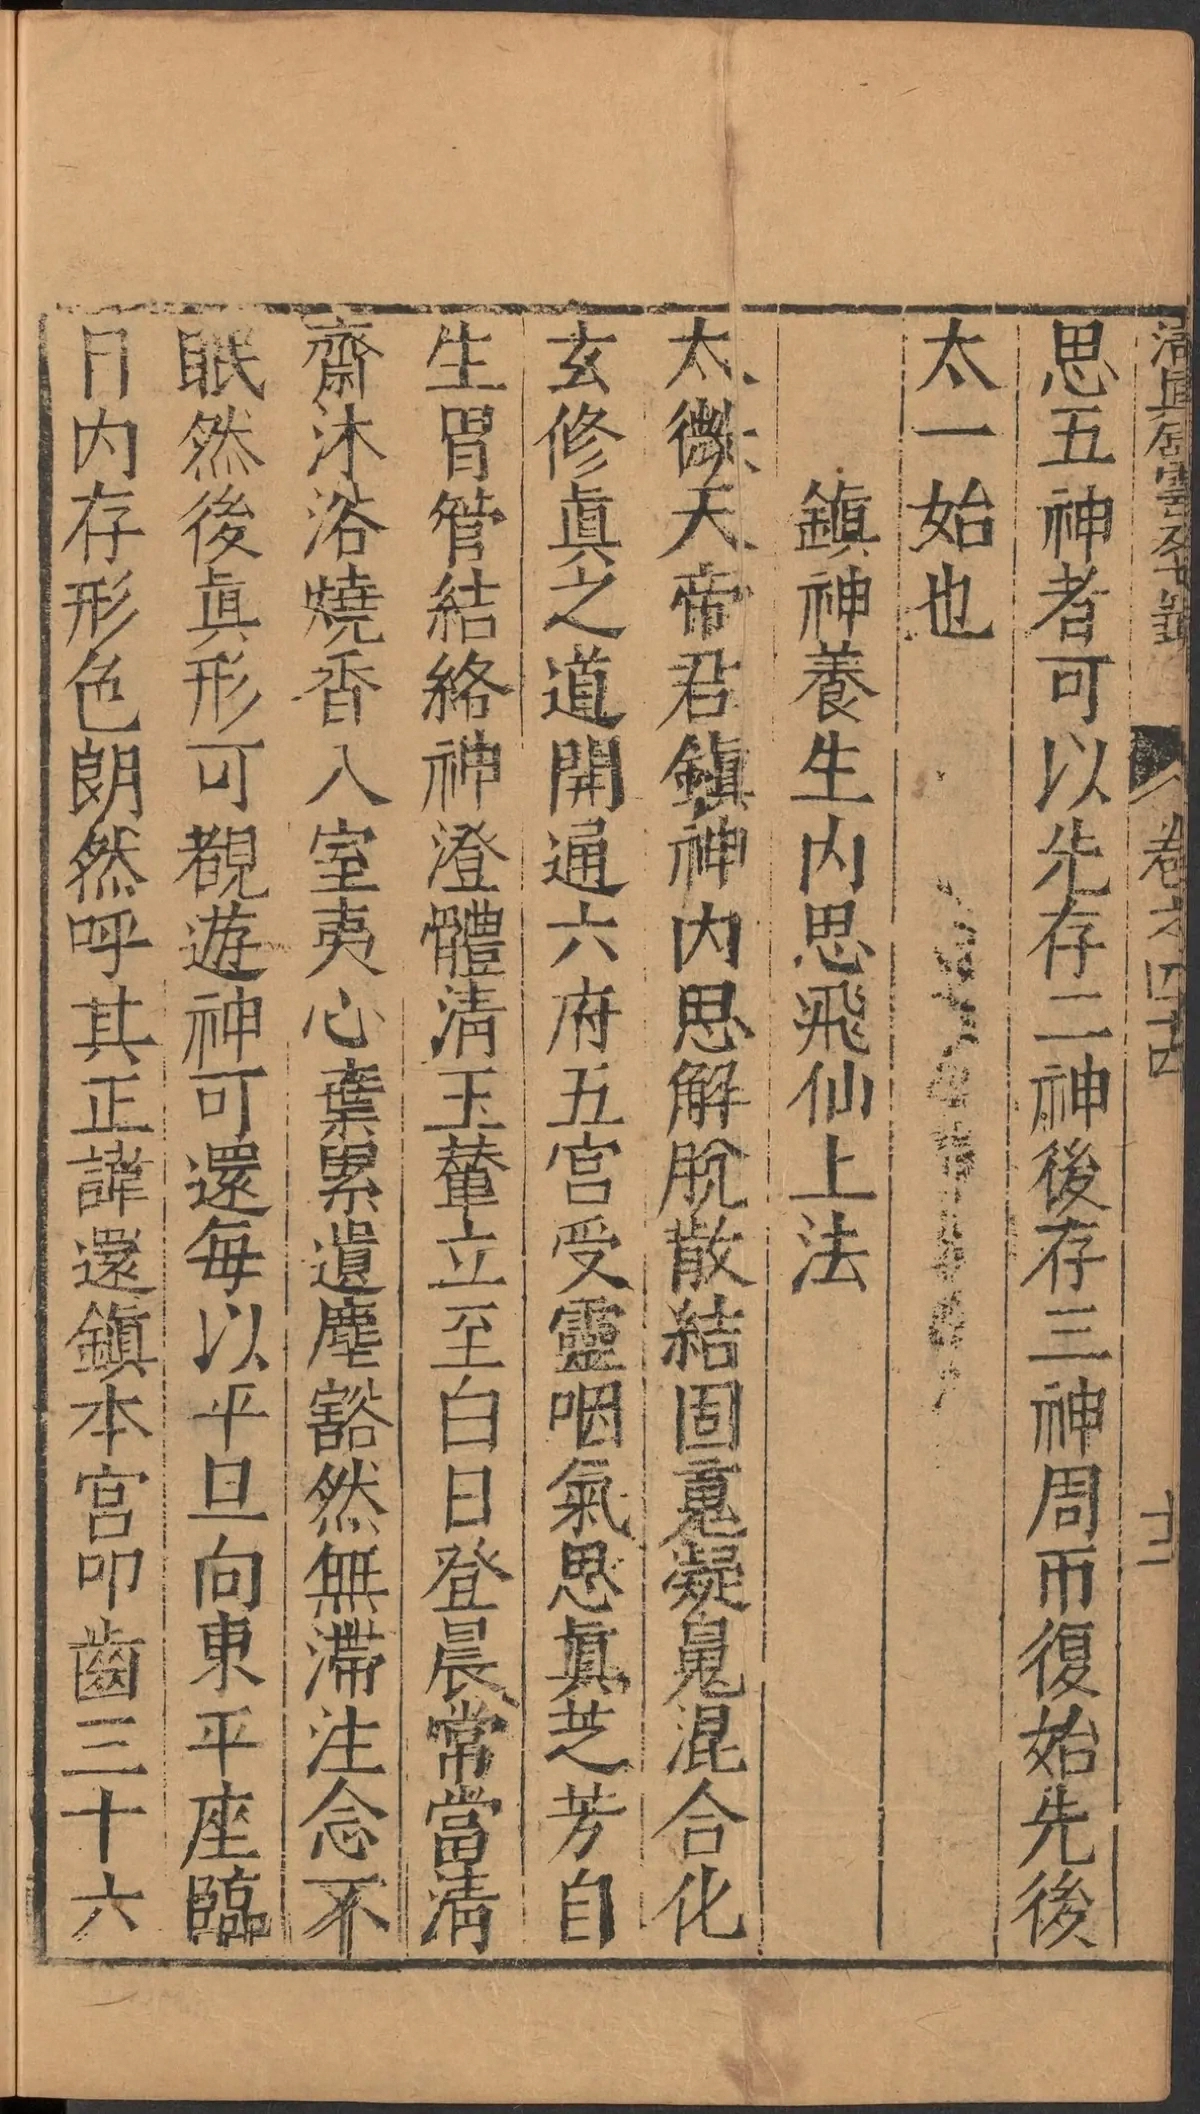 清真居雲笈七籤 卷之四十四 十二
思五神者可以先存二神後存三神周而復始先後
太一始也
鎮神養生內思飛仙上法
太微天帝君鎮神內思解脫散結固䰟凝䰟混合化
玄修眞之道開通六府五宮受靈咽氣思眞芝芳自
生胃管結絡神澄體清玉輦立至白日登晨常當清
齋沐浴燒香入室夷心棄累遺塵豁然無滯注念不
眠然後眞形可覩遊神可還每以平旦向東平座臨
目內存形色朗然呼其正諱還鎮本宮叩齒三十六